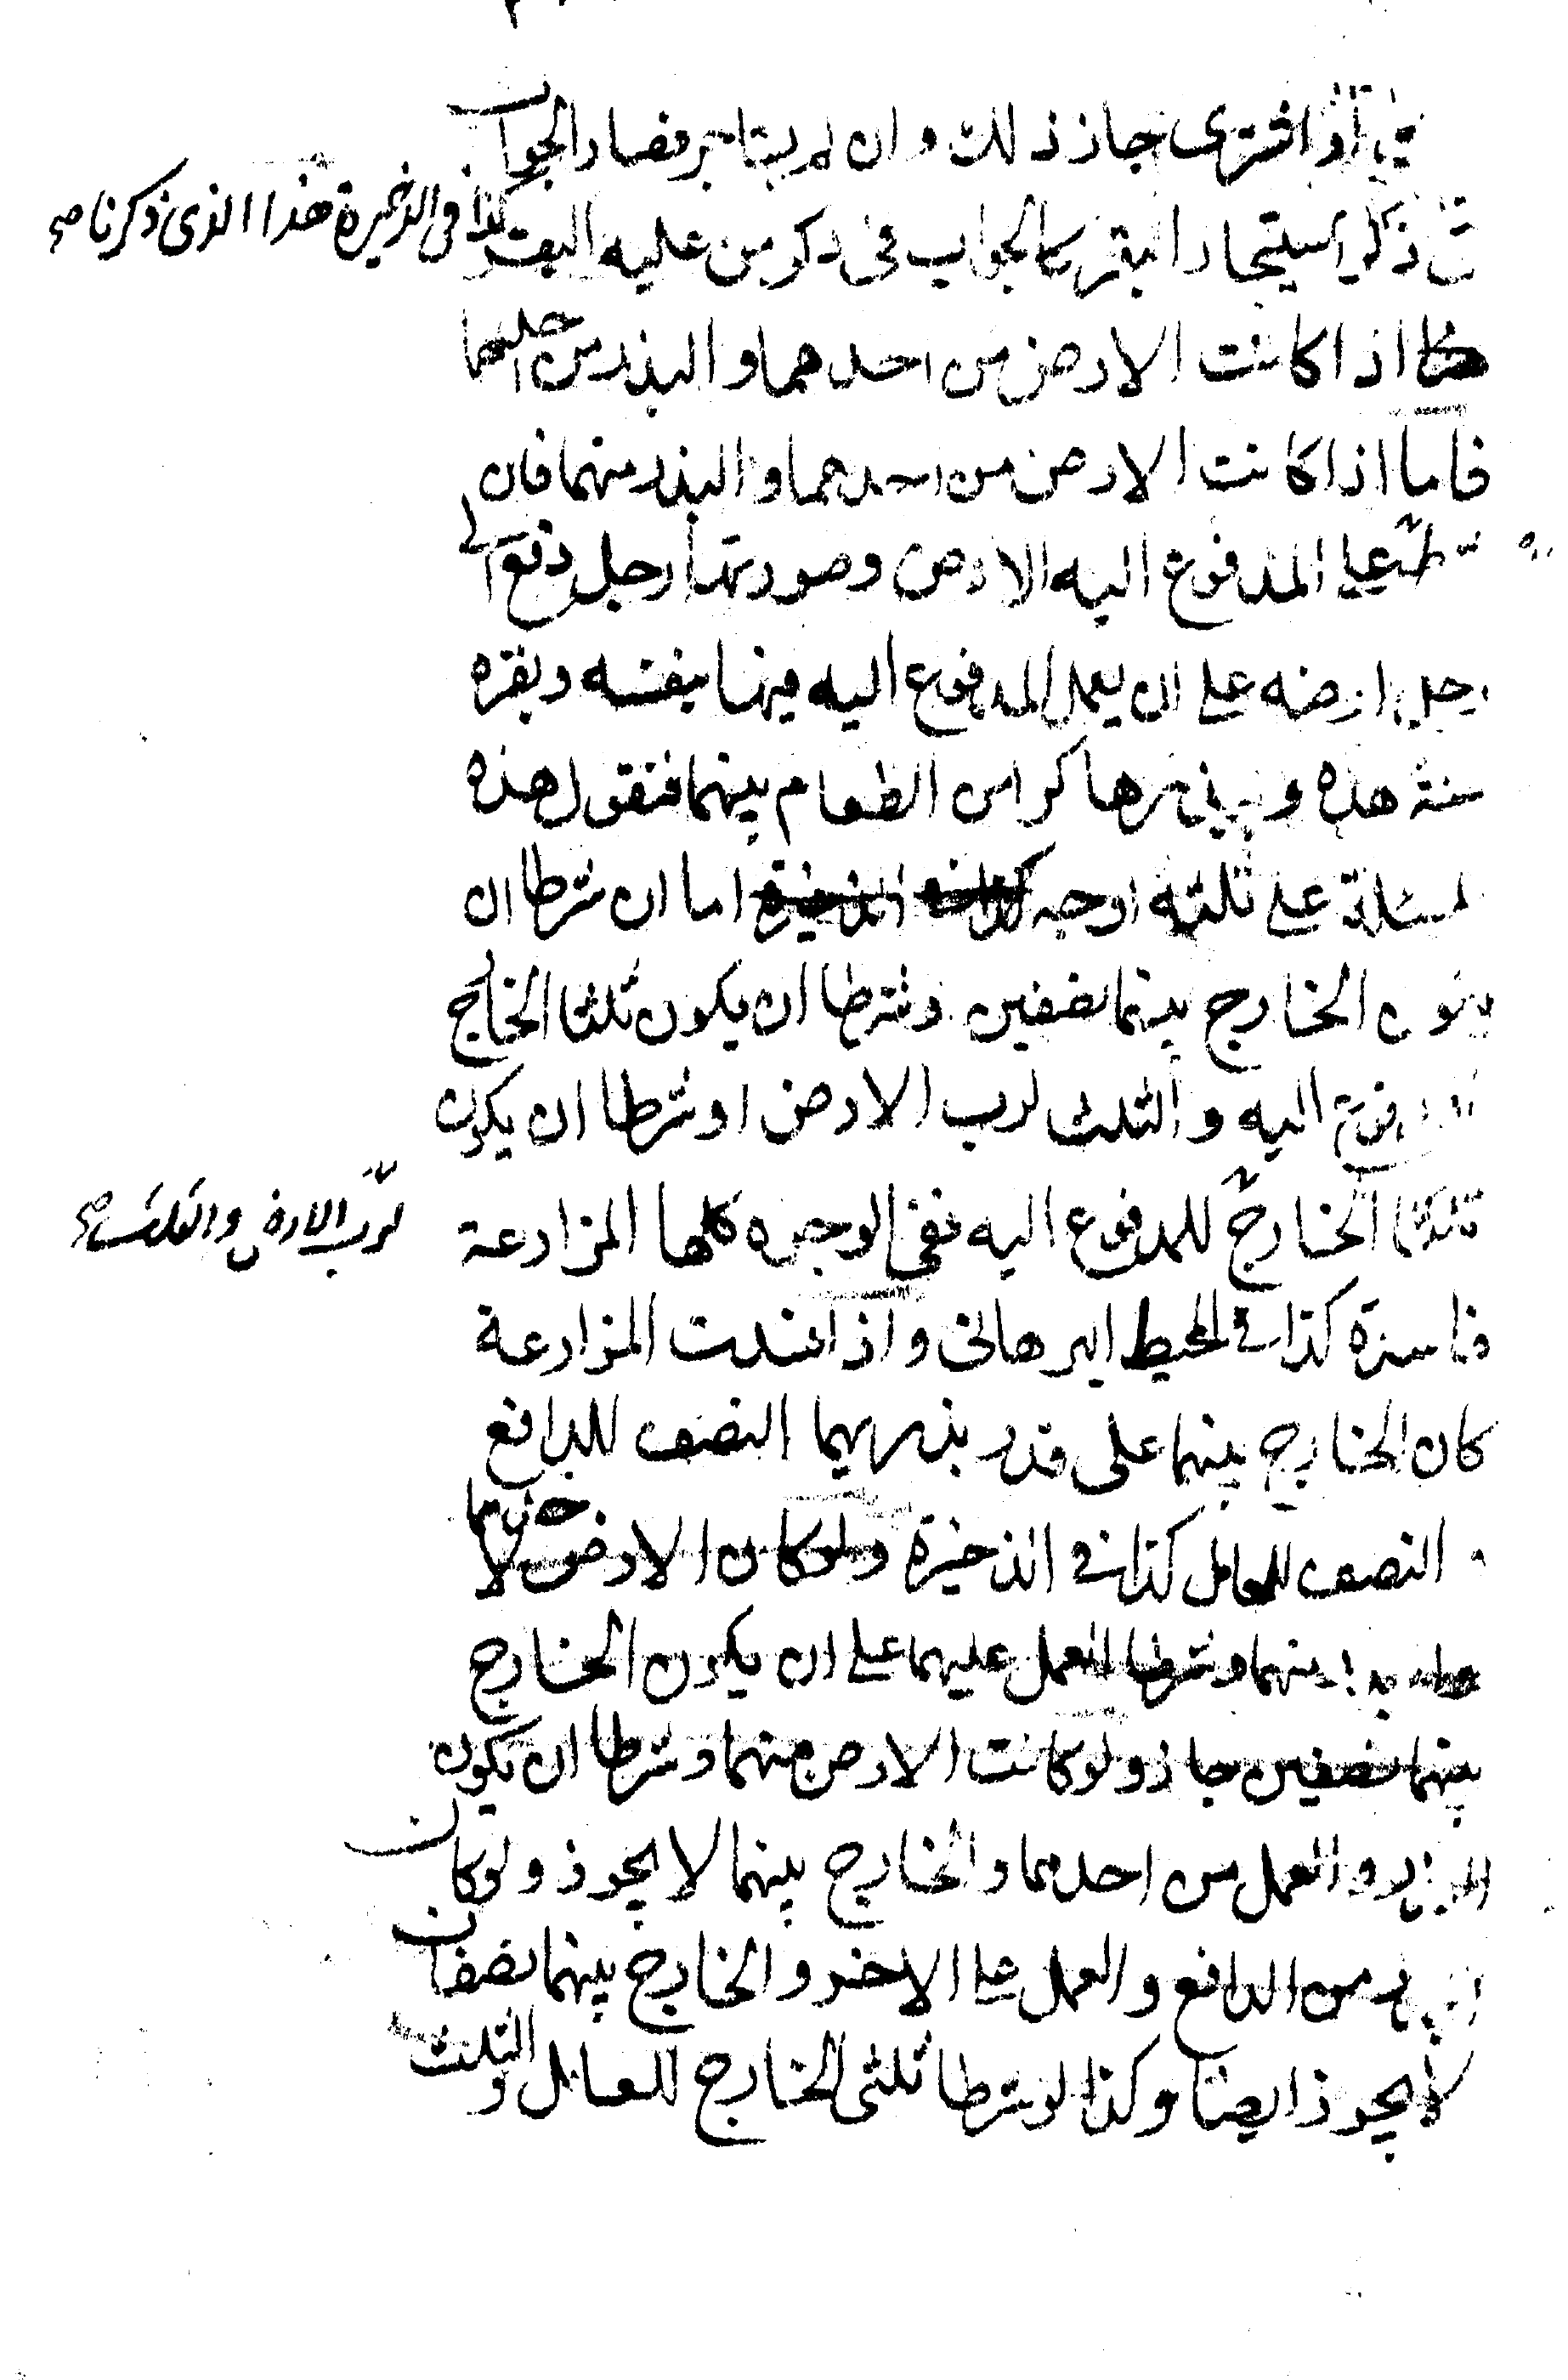 جاز ذلك وان لم يستاجر فصار الجواب
ذكر استيجار البقر كالجواب فى ذكر من عليه البقر
كذا فى الذخيرة هذا الذى ذكرنا صح
اذا كانت الارض من احدهما والبذر من احدهما
فاما اذا كانت الارض من احدهما والبذر منهما فان
المدفوع اليه الارض وصورتها رجل دفع الى
رجل ارضه على ان يعمل المدفوع اليه فيها بنفسه وبقره
سنة هذه كرا من الطعام بينهما فنقول هذه
المسئلة على ثلثة اوجه كذا فى الذخيرة اما ان شرطا ان
يكون الخارج بينهما نصفين وشرطا ان يكون ثلثا الخارج
اليه والثلث لرب الارض او شرطا ان يكون
ثلثا الخارج للمدفوع اليه ففى الوجوه كلها المزارعة
لرب الارض والثلث صح
فاسدة كذا فى المحيط البرهانى واذا فسدت المزارعة
كان الخارج بينهما على قدر بذريهما النصف للدافع
النصف للعامل كذا فى الذخيرة ولو كان الارض
منهما وشرطا العمل عليهما على ان يكون الخارج
بينهما نصفين جاز ولو كانت الارض منهما وشرطا ان يكون
البذر والعمل من احدهما والخارج بينهما لا يجوز ولو كان
البذر من الدافع والعمل على الاخر والخارج بينهما نصفان
لا يجوز ايضا وكذا لو شرطا ثلثى الخارج للعامل والثلث